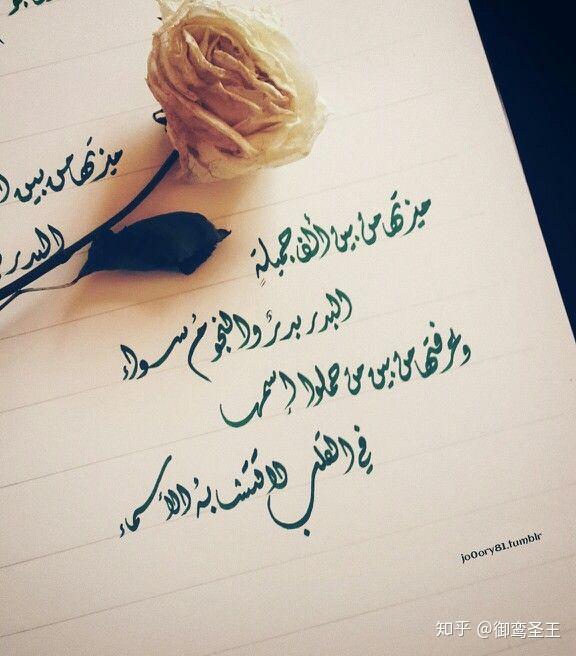 ميزتها من بين ا
البدر
ميزتها من بين ألف جميلةٍ
البدر بدرٌ والنجومُ سواء
وعرفتها من بين من حملوا إسمها
في القلب لا تتشابهُ الأسماء
jo0ory81.tumblr
知乎 @御鸾圣王